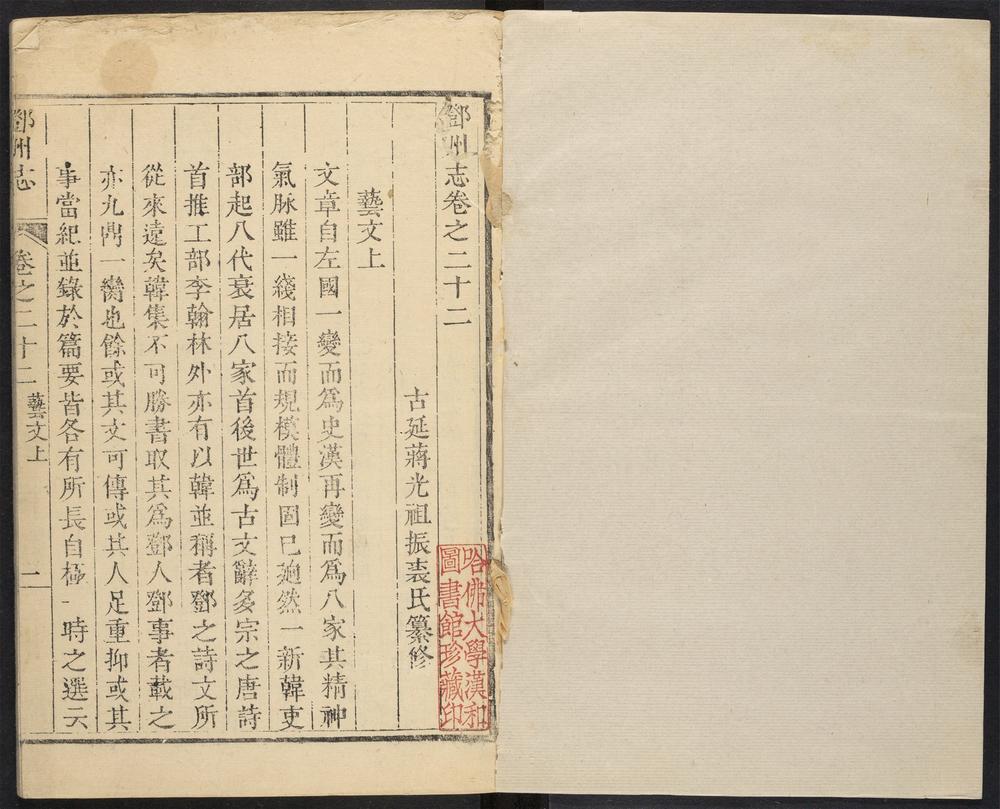 鄧州志卷之二十二
古延蔣光祖振裘氏纂修
藝文上
文章自左國一變而爲史漢再變而爲八家其精神
氣脉雖一綫相接而規模體制固已逈然一新韓吏
部起八代衰居八家首後世爲古文辭多宗之唐詩
首推工部李翰林外亦有以韓並稱者鄧之詩文所
從來遠矣韓集不可勝書取其爲鄧人鄧事者載之
亦九鼎一臠也餘或其文可傳或其人足重抑或其
事當紀並錄於篇要皆各有所長自極一時之選云
鄧州志
卷之二十二
藝文上
一
哈佛大學漢和
圖書館珍藏印